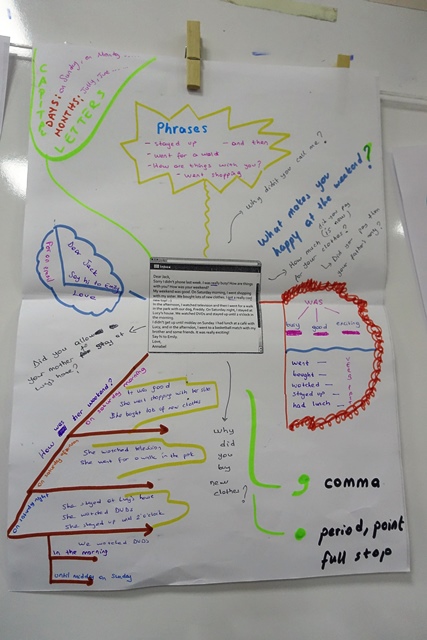 CAPITAL
LETTERS
DAYS: on Sunday, on Monday...
MONTHS: July, June...
Phrases
- stayed up - and then
- went for a walk
- How are things with you?
- went shopping
Why didn't you call me?
What makes you
happy at the weekend?
How much did you pay
for your clothes?
Dear Jack
Say hi to Emily
Love
personal
Dear Jack,
Sorry I didn't phone last week. I was really tired! How are things
with you? How was your weekend?
My weekend was good. On Saturday morning, I went shopping
with my sister. We bought lots of new clothes.
In the afternoon, I watched television and then I went for a walk
in the park with our dog, Freddy. On Saturday night, I stayed at
Lucy's house. We watched DVDs and stayed up until 3 o'clock in
the morning!
I didn't get up until midday on Sunday. I had lunch at a café with
Lucy, and in the afternoon, I went to a basketball match with my
brother and some friends. It was really exciting!
Say hi to Emily.
Love,
Annabel
WAS
busy good exciting
went —
bought —
watched —
stayed up —
had lunch —
Did you allow
your mother to stay at
Lucy's house?
How was her weekend?
on saturday morning
She went shopping with her sister
She bought lots of new clothes
She watched television
She went for a walk in the park
on saturday night
She stayed at Lucy's house
She watched DVDs
She stayed up until 3 o'clock
We watched DVDs
in the morning
until midday on Sunday
why
did
you
buy
new
clothes?
, comma
. period, point
full stop